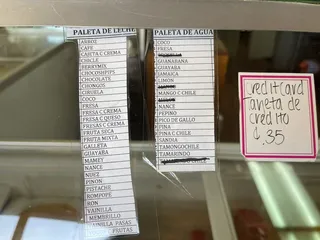 PALETA DE LECHE
ARROZ
CAFE
CAJETA C CREMA
CHICLE
FERRYMIX
CHOCOSHPIPS
CHOCOLATE
CHONGOS
CIRUELA
COCO
FRESA
FRESA C CREMA
FRESA C QUESO
FRESAS C CREMA
FRUTA SECA
FRUTA MIXTA
GALLETA
GUAYABA
MAMEY
NANCE
NUEZ
PIÑON
PISTACHE
ROMPOPE
RON
VAINILLA
MEMBRILLO
VAINILLA PASAS
FRUTAS
PALETA DE AGUA
COCO
FRESA
GUANABANA
GUAYABA
JAMAICA
LIMON
MANGO C CHILE
NANCE
PEPINO
PICO DE GALLO
PINA
PINA C CHILE
SANDIA
TAMONGOCHILE
TAMARINDO
credit card
tarjeta de
credito
¢.35